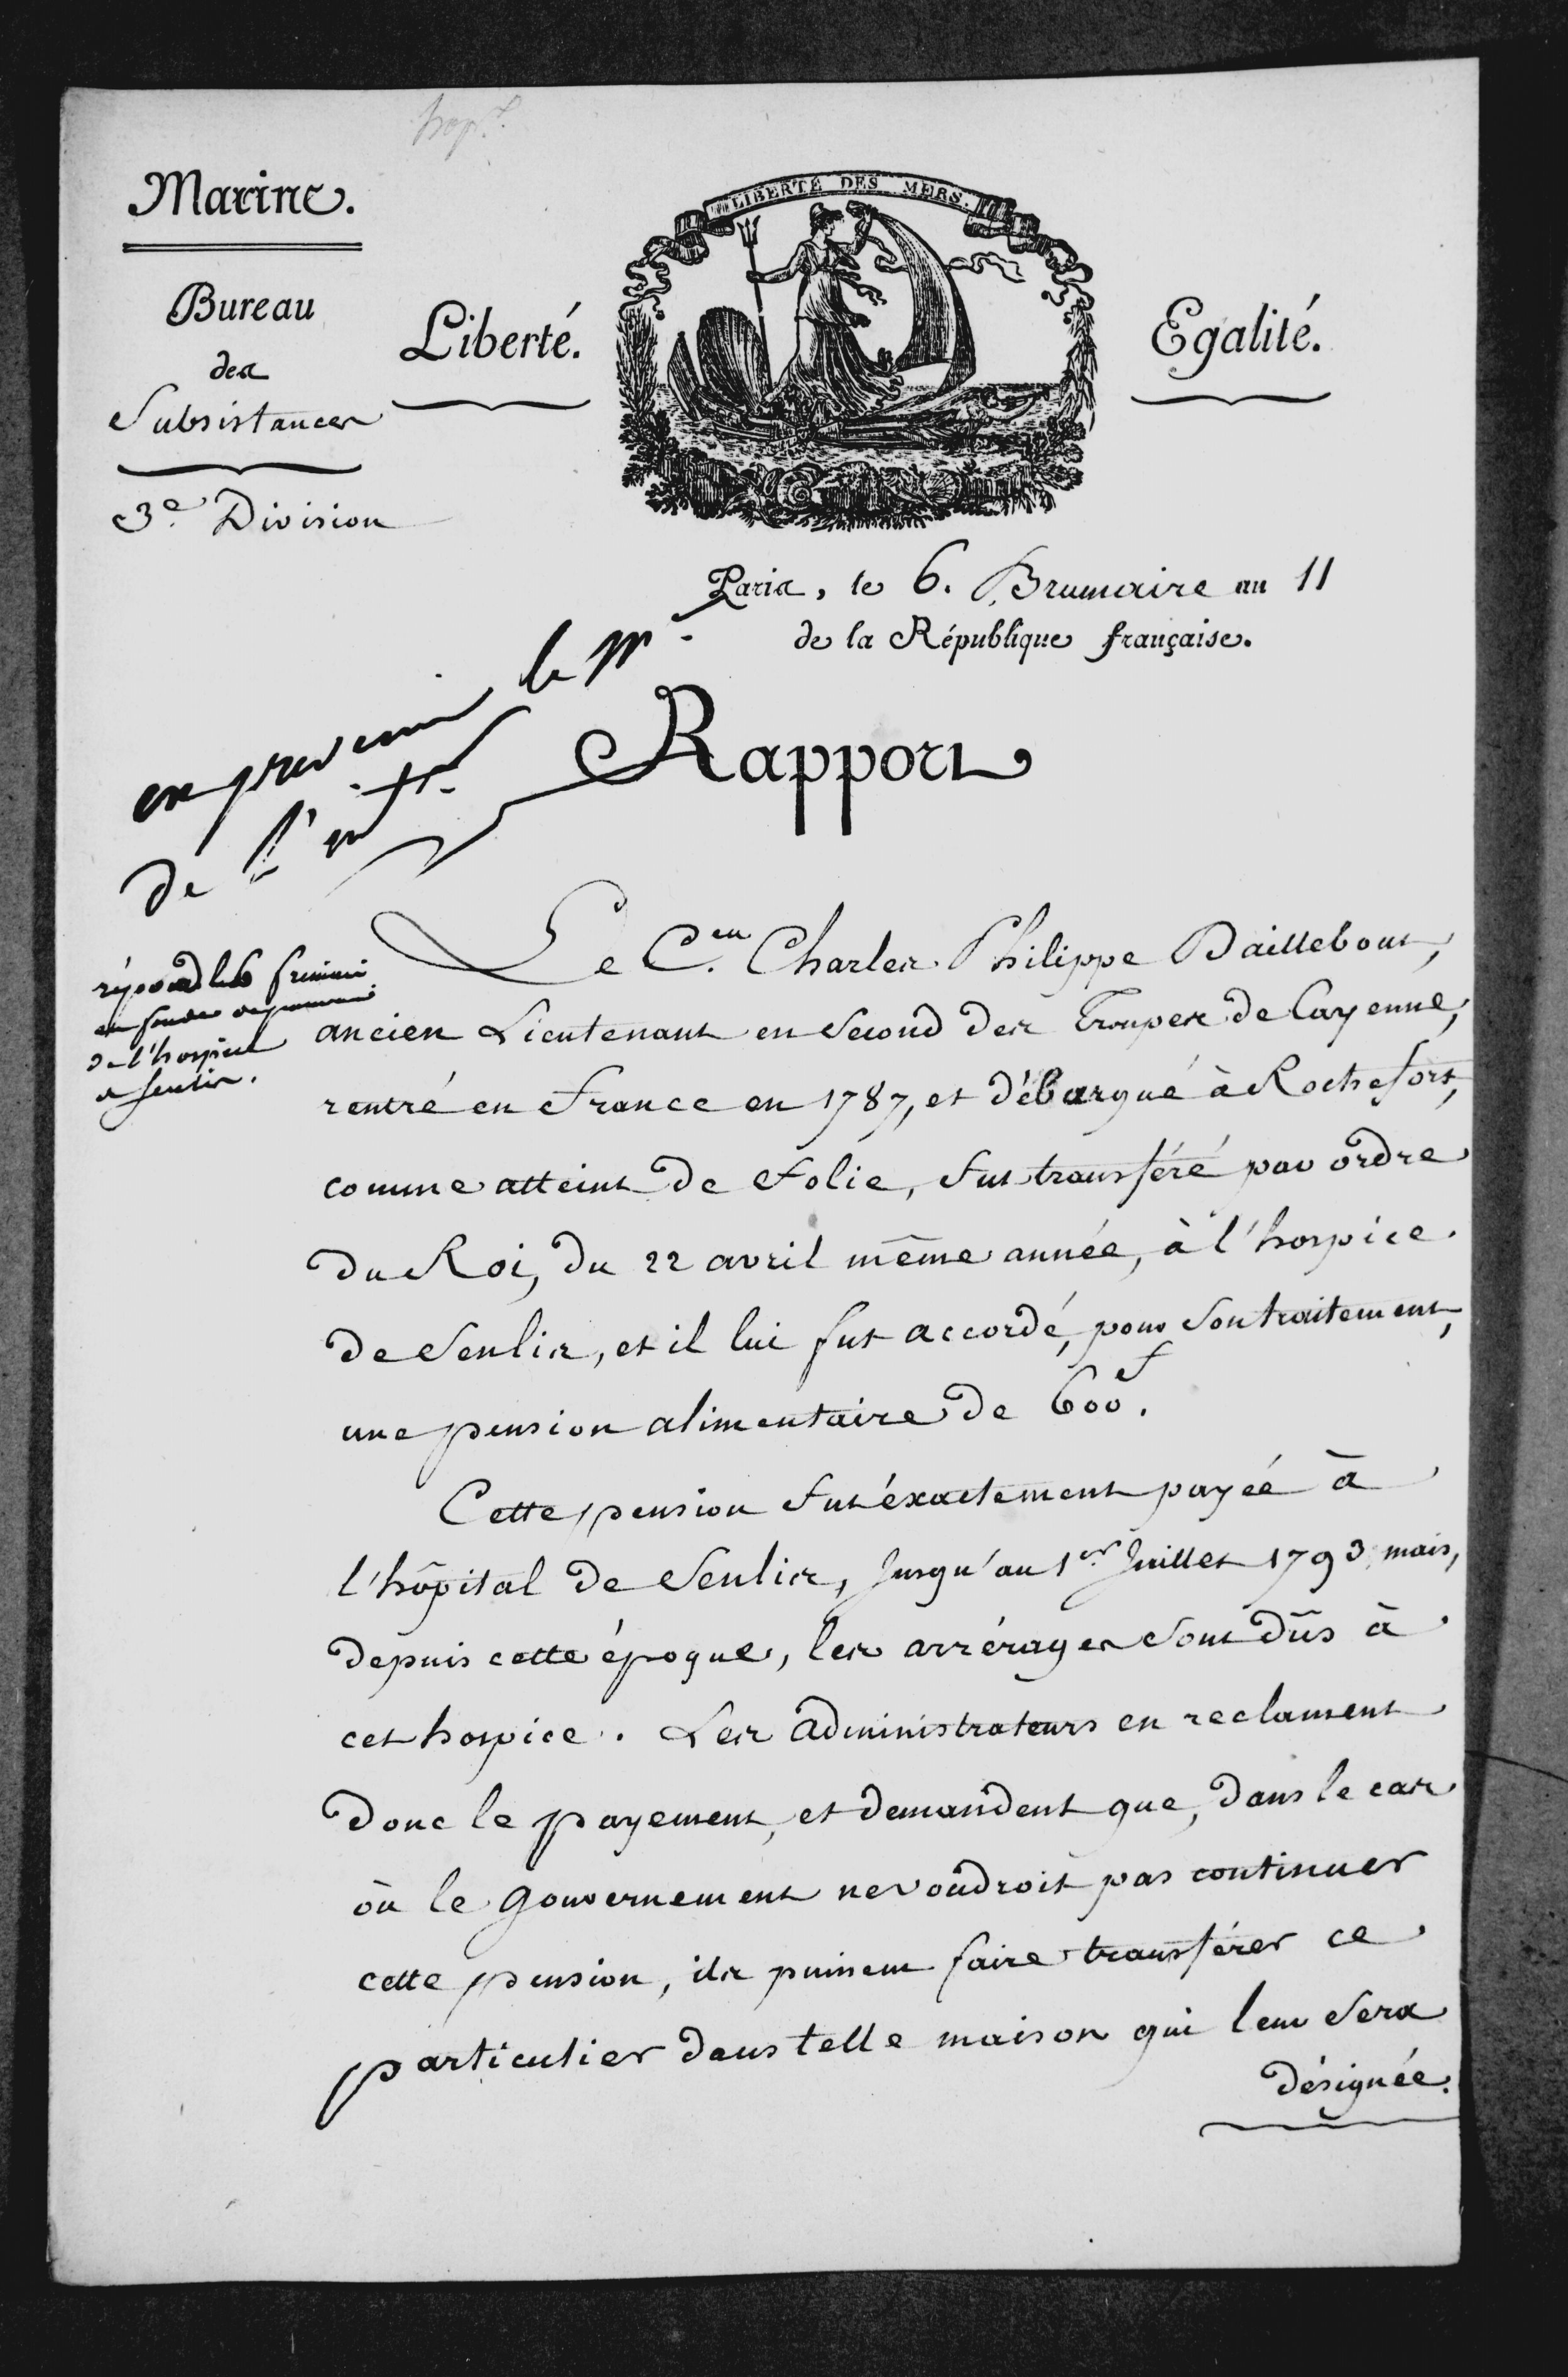 hop.l
Marine.
Bureau
des
Subsistances
3.e Division
Liberté.
LIBERTÉ DES MERS.
Egalité.
Paris, le 6. Brumaire an 11
de la République française.
en prevenir le M.
de l'int.r
Rapport
répondre
de l'hospice
de Senlis.
Le C.en Charles Philippe Daillebout,
ancien Lieutenant en Second des Troupes de Cayenne,
rentré en France en 1787, et débarqué à Rochefort,
comme atteint de folie, fut transféré par ordre
du Roi, du 22 avril même année, à l'hospice
de Senlis, et il lui fut accordé, pour Son traitement,
une pension alimentaire de 600.f
Cette pension fut éxactement payée à
l'hôpital de Senlis, Jusqu'au 1.er Juillet 1793, mais,
depuis cette époque, les arrérages Sont dûs à
cet hospice. Les administrateurs en reclament
donc le payement, et demandent que, dans le cas
où le Gouvernement ne voudroit pas continuer
cette pension, ils puissent faire transférer ce
particulier dans telle maison qui leur Sera
désignée.